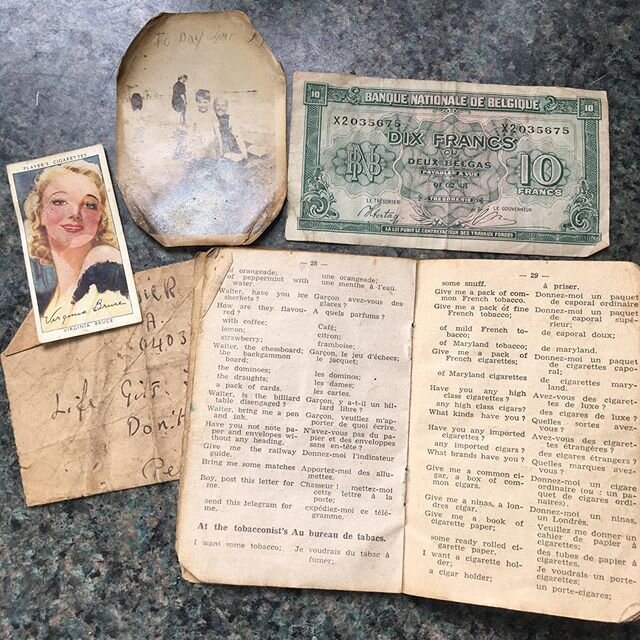 To Day
PLAYER'S CIGARETTES
Virginia Bruce
VIRGINIA BRUCE
10
BANQUE NATIONALE DE BELGIQUE
10
X2035675
X2035675
DIX FRANCS
OU
DEUX BELGAS
PAYABLES A VUE
10
FRANCS
LE TRÉSORIER
TRÉSORERIE
LE GOUVERNEUR
LA LOI PUNIT LE CONTREFACTEUR DES TRAVAUX FORCÉS
A
0403
Life Gits.
Don't
Pe
— 28 —
of orangeade; une orangeade;
of peppermint with une menthe à l'eau.
water.
Waiter, have you ice Garçon avez-vous des
sherbets ? glaces ?
How are they flavou- A quels parfums ?
red ?
with coffee; Café;
lemon; citron;
strawberry; framboise;
Waiter, the chessboard; Garçon, le jeu d'échecs;
the backgammon le jacquet;
board;
the dominoes; les dominos;
the draughts; les dames;
a pack of cards. les cartes.
Waiter, is the billiard Garçon, y a-t-il un bil-
table disengaged ? lard libre ?
Waiter, bring me a pen Garçon, veuillez m'ap-
and ink. porter de quoi écrire.
Have you not note pa- N'avez-vous pas du pa-
per and envelopes wi- pier et des enveloppes
thout any heading. sans en-tête ?
Give me the railway Donnez-moi l'indicateur
guide.
Bring me some matches Apportez-moi des allu-
mettes.
Boy, post this letter for Chasseur ! mettez-moi
me. cette lettre à la
poste;
send this telegram for expédiez-moi ce télé-
me. gramme.
At the tobacconist's Au bureau de tabacs.
I want some tobacco; Je voudrais du tabac à
fumer;
— 29 —
some snuff. à priser.
Give me a pack of com- Donnez-moi un paquet
mon French tobacco. de caporal ordinaire
Give me a pack of fine Donnez-moi un paquet
French tobacco; de caporal supé-
rieur;
of mild French to- de caporal doux;
bacco;
of Maryland tobacco; de maryland.
Give me a pack of Donnez-moi un paquet
French cigarettes; de cigarettes capo-
ral;
of Maryland cigarettes de cigarettes mary-
land.
Have you any high Avez-vous des cigaret-
class cigarettes ? tes de luxe ?
any high class cigars? des cigares de luxe ?
What kinds have you? Quelles sortes avez-
vous ?
Have you any imported Avez-vous des cigaret-
cigarettes ? tes étrangères ?
any imported cigars? des cigares étrangers ?
What brands have you? Quelles marques avez-
vous ?
Give me a common ci- Donnez-moi un cigare
gar, a box of com- ordinaire (ou : un pa-
mon cigars. quet de cigares ordi-
naires).
Give me a ninas, a lon- Donnez-moi un ninas,
drès cigar. un Londrès.
Give me a book of Veuillez me donner un
cigarette paper; cahier de papier à
cigarettes;
some ready rolled ci- des tubes de papier à
garette paper. cigarettes.
I want a cigarette hol- Je voudrais un porte-
der; cigarettes;
a cigar holder; un porte-cigares;